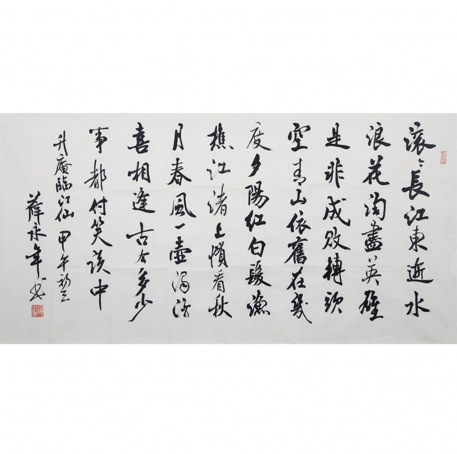 滚〻長江東逝水
浪花淘盡英雄
是非成敗轉頭
空青山依舊在幾
度夕陽紅白髮漁
樵江渚上慣看秋
月春風一壺濁酒
喜相逢古今多少
事都付笑談中
升庵臨江仙 甲午
薛永年書